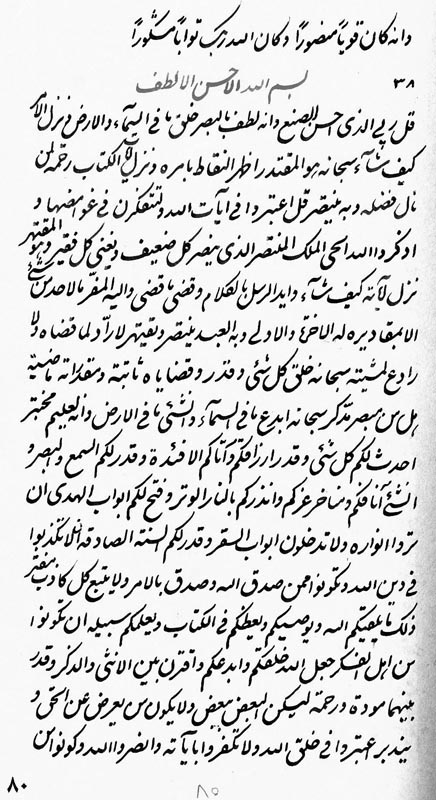 وانه كان قوياً منصوراً وكان الله ربك تواباً مشكوراً
بسم الله الاحسن الالطف
٣٨
قل ربي الذى احسن الصنع وانه لطف بالبصر خلق ما في السمآء والارض و نزل الامر
كيف شآء سبحانه هو المقتدر اظهر النقاط بامره ونزل الكتاب رحمة لمن
نال فضله و به ينتصر قل اعتبروا في آيات الله ولتتفكرن في غوامضها و
اذكروا الله الحي الملك المنتصر الذى ينصر كل ضعيف و يغني كل فقير و هو المقتهر
نزل الآية كيف شآء وايد الرسل بالكلام وقضى ما قضى واليه المفر ما لاحد من شئ
الا بمقاديره له الآخرة والاولى و به العبد ينتصر ويقتهر لا رآد لما قضاه ولا
رادع لمشيته سبحانه خلق كل شئ وقدر وقضاياه ثابتة ومقدراته ماضية
هل من مبصر تذكر سبحانه ابدع ما في السمآء وانشئ ما في الارض وانه لعليم مختبر
احدث لكم كل شئ وقدر ارزاقكم وآتاكم الافئدة وقدر لكم السمع والبصر و
انشئ آنافكم و مناخركم وانذركم بالنار الوتر و فتح لكم ابواب الهدى ان
تروا انواره ولا تدخلون ابواب السقر وقدر لكم السنة الصادقة لئلا تكذبوا
في دين الله وتكونوا ممن صدق الله وصدق بالامر ولا يتبع كل كاذب مفتر
ذلك ما يلقيكم الله و يوصيكم ويعظكم في الكتاب ويعلمكم سبيله ان تكونوا
من اهل الفكر جعل الله خلقكم وابدعكم واقرن بين الانثى والذكر وقدر
بينهما مودة ورحمة ليسكن البعض ببعض ولا يكون من يعرض عن الحق و
يتدبر اعتبروا في خلق الله ولا تكفروا بآياته وانصروا الله وكونوا من
٨٠
٨٥